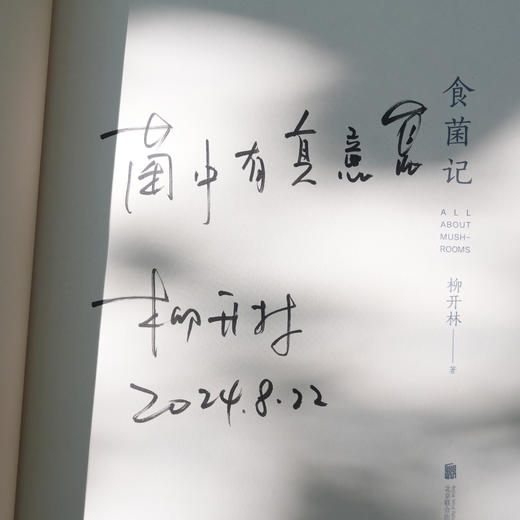 菌中有真意
柳开林
2024.8.22
食菌记
ALL
ABOUT
MUSH-
ROOMS
柳开林 著
北京联合出